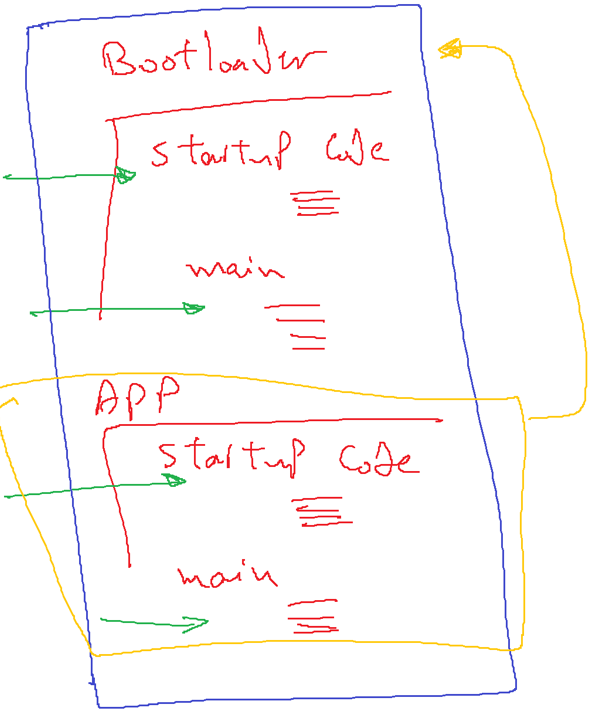 Bootloader
startup code
main
APP
startup code
main